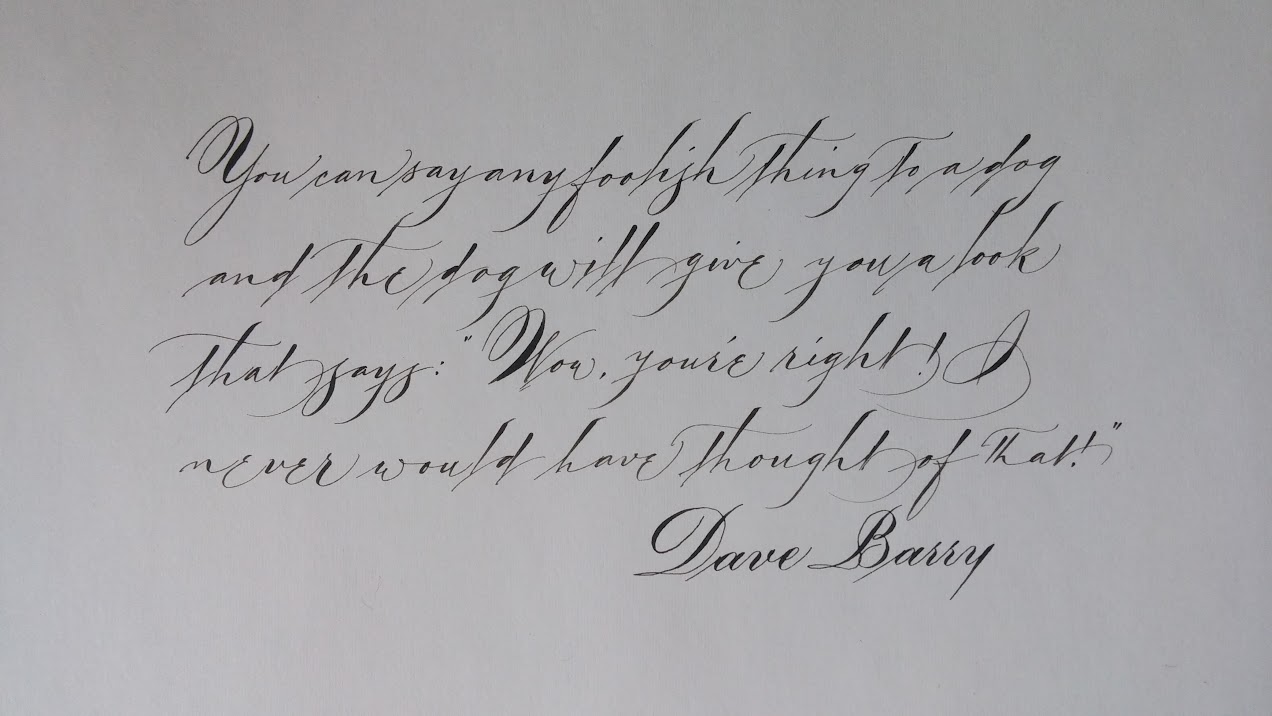 You can say any foolish thing to a dog
and the dog will give you a look
that says: "Wow, you're right! I
never would have thought of that!"
Dave Barry